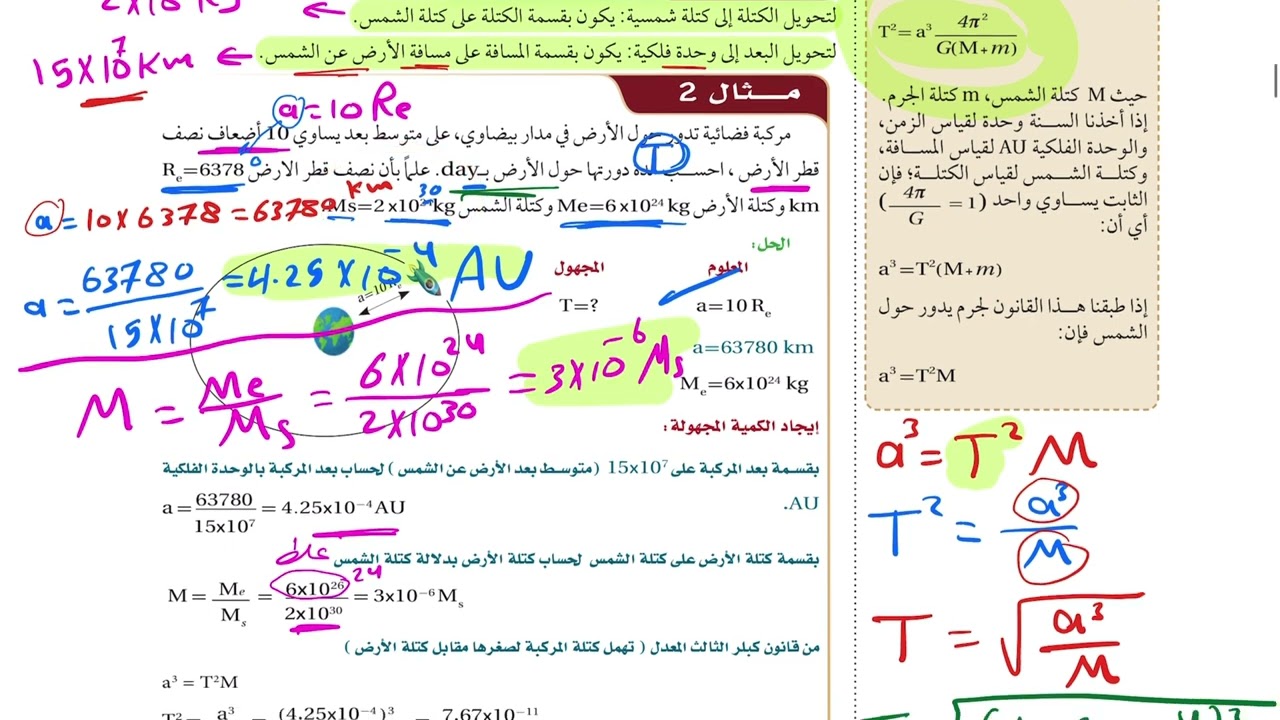 لتحويل الكتلة إلى كتلة شمسية: يكون بقسمة الكتلة على كتلة الشمس.
15X10⁷Km ← لتحويل البعد إلى وحدة فلكية: يكون بقسمة المسافة على مسافة الأرض عن الشمس.
مـــثال 2
a=10 Re
مركبة فضائية تدور حول الأرض في مدار بيضاوي، على متوسط بعد يساوي 10 أضعاف نصف
قطر الأرض ، احسب مدة دورتها حول الأرض بـday. علماً بأن نصف قطر الارض Rₑ=6378
T
km وكتلة الأرض Me=6x10²⁴ kg وكتلة الشمس Ms=2 x10³⁰ kg
a = 10 X 6378 = 63780 km
الحل:
المعلوم
المجهول
a=10 Rₑ
T=?
a=63780 km
Mₑ=6x10²⁴ kg
a=10 Rₑ
a = 63780 / 15X10⁷ = 4.25 X10⁻⁴ AU
M = Me / Ms = 6X10²⁴ / 2X10³⁰ = 3X10⁻⁶ Ms
إيجاد الكمية المجهولة:
بقسمة بعد المركبة على 15x10⁷ (متوسط بعد الأرض عن الشمس ) لحساب بعد المركبة بالوحدة الفلكية
AU.
a = 63780 / 15x10⁷ = 4.25x10⁻⁴ AU
بقسمة كتلة الأرض على كتلة الشمس لحساب كتلة الأرض بدلالة كتلة الشمس
24
M = Mₑ / Mₛ = 6x10²⁶ / 2x10³⁰ = 3x10⁻⁶ Mₛ
من قانون كبلر الثالث المعدل ( تهمل كتلة المركبة لصغرها مقابل كتلة الأرض )
a³ = T²M
T² = a³ = (4.25x10⁻⁴)³ = 7.67x10⁻¹¹
T² = a³ 4π² / G(M+m)
حيث M كتلة الشمس، m كتلة الجرم.
إذا أخذنا السـنة وحدة لقياس الزمن،
والوحدة الفلكية AU لقياس المسـافة،
وكتلـة الشـمس لقياس الكتلـة؛ فإن
الثابت يسـاوي واحد (4π / G = 1)
أي أن:
a³=T²(M+m)
إذا طبقنا هـذا القانون لجرم يدور حول
الشمس فإن:
a³=T²M
a³ = T² M
T² = a³ / M
T = √a³ / M